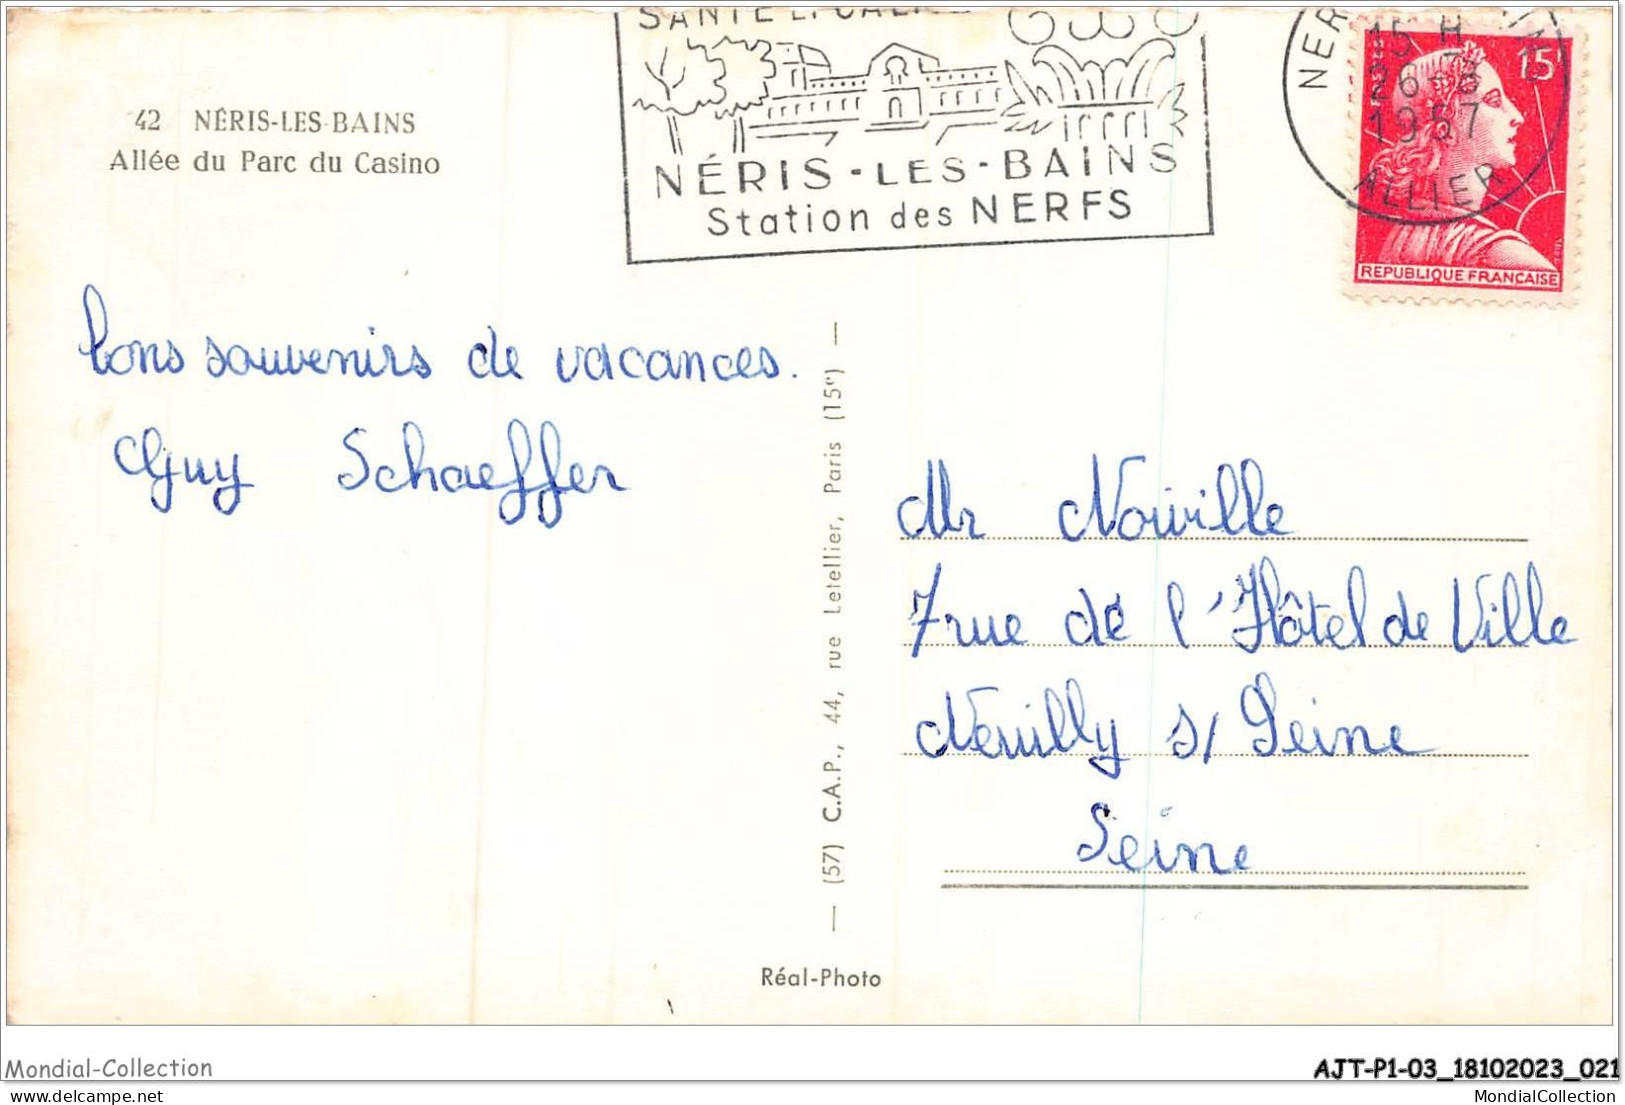 42 NÉRIS-LES-BAINS
Allée du Parc du Casino
SANTÉ
NÉRIS-LES-BAINS
Station des NERFS
NER
15 H
1957
ALLIER
15F
REPUBLIQUE FRANÇAISE
bons souvenirs de vacances.
Guy Schaeffer
Mr Noiville
7 rue de l'Hôtel de Ville
Neuilly s/ Seine
Seine
— (57) C.A.P., 44, rue Letellier, Paris (15e) —
Réal-Photo
Mondial-Collection
AJT-P1-03_18102023_021
MondialCollection
MondialCollection.com